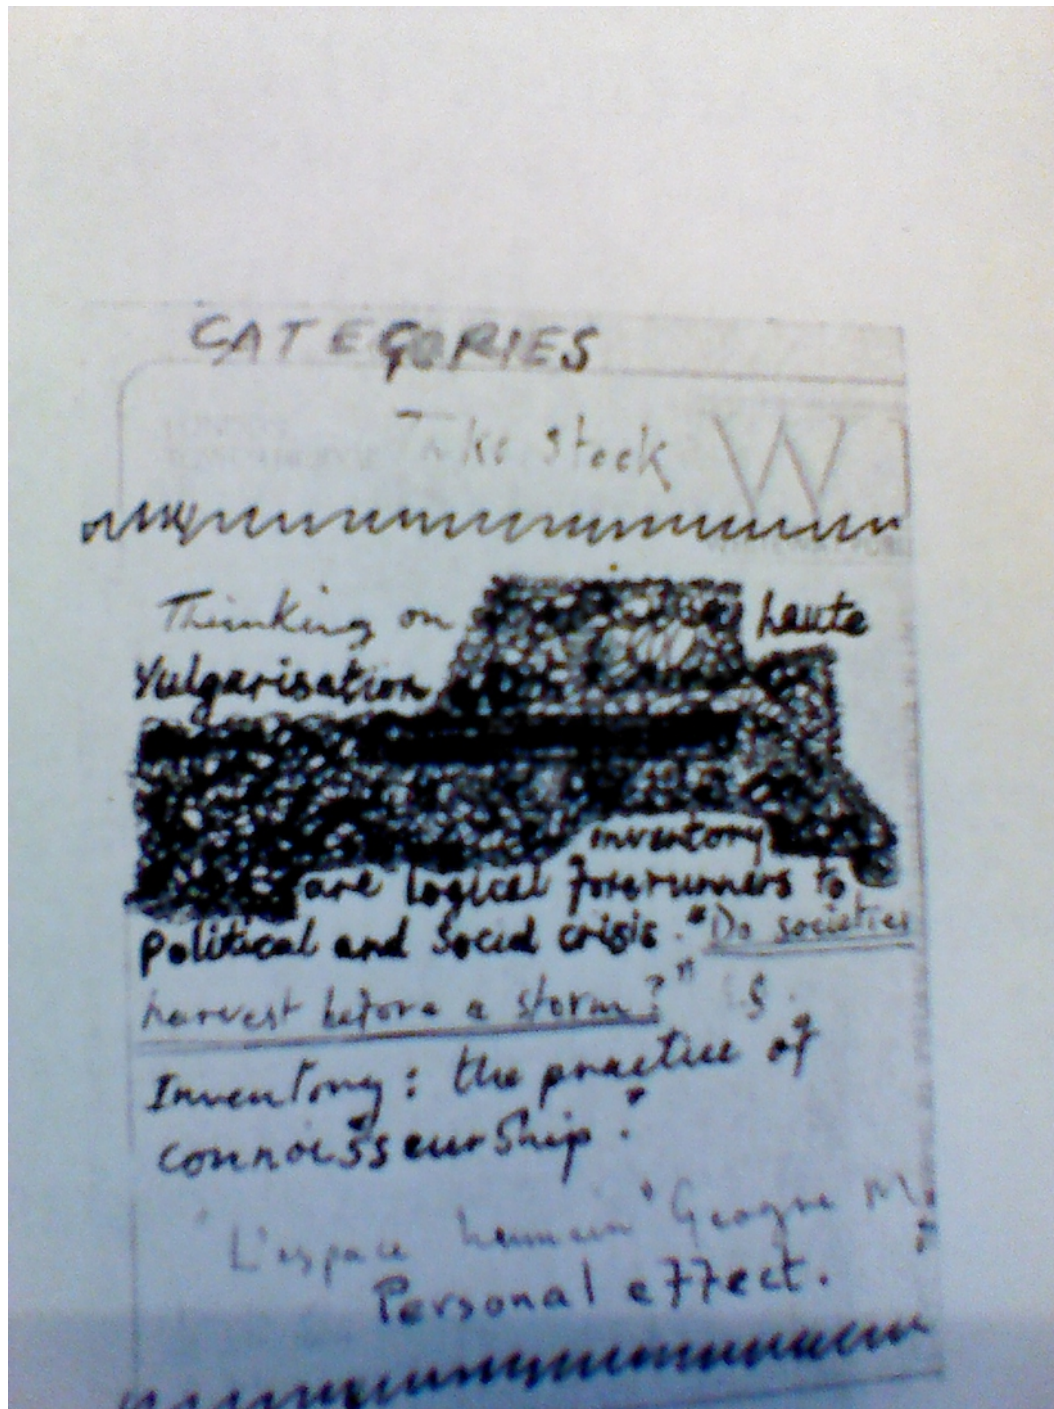 CATEGORIES
Take stock W
Thinking on haute
Vulgarisation
inventory
are logical forerunners to
political and social crisis. "Do societies
harvest before a storm?" S.
Inventory: the practice of
connoisseurship.
"L'espace humain" George M.
Personal effect.